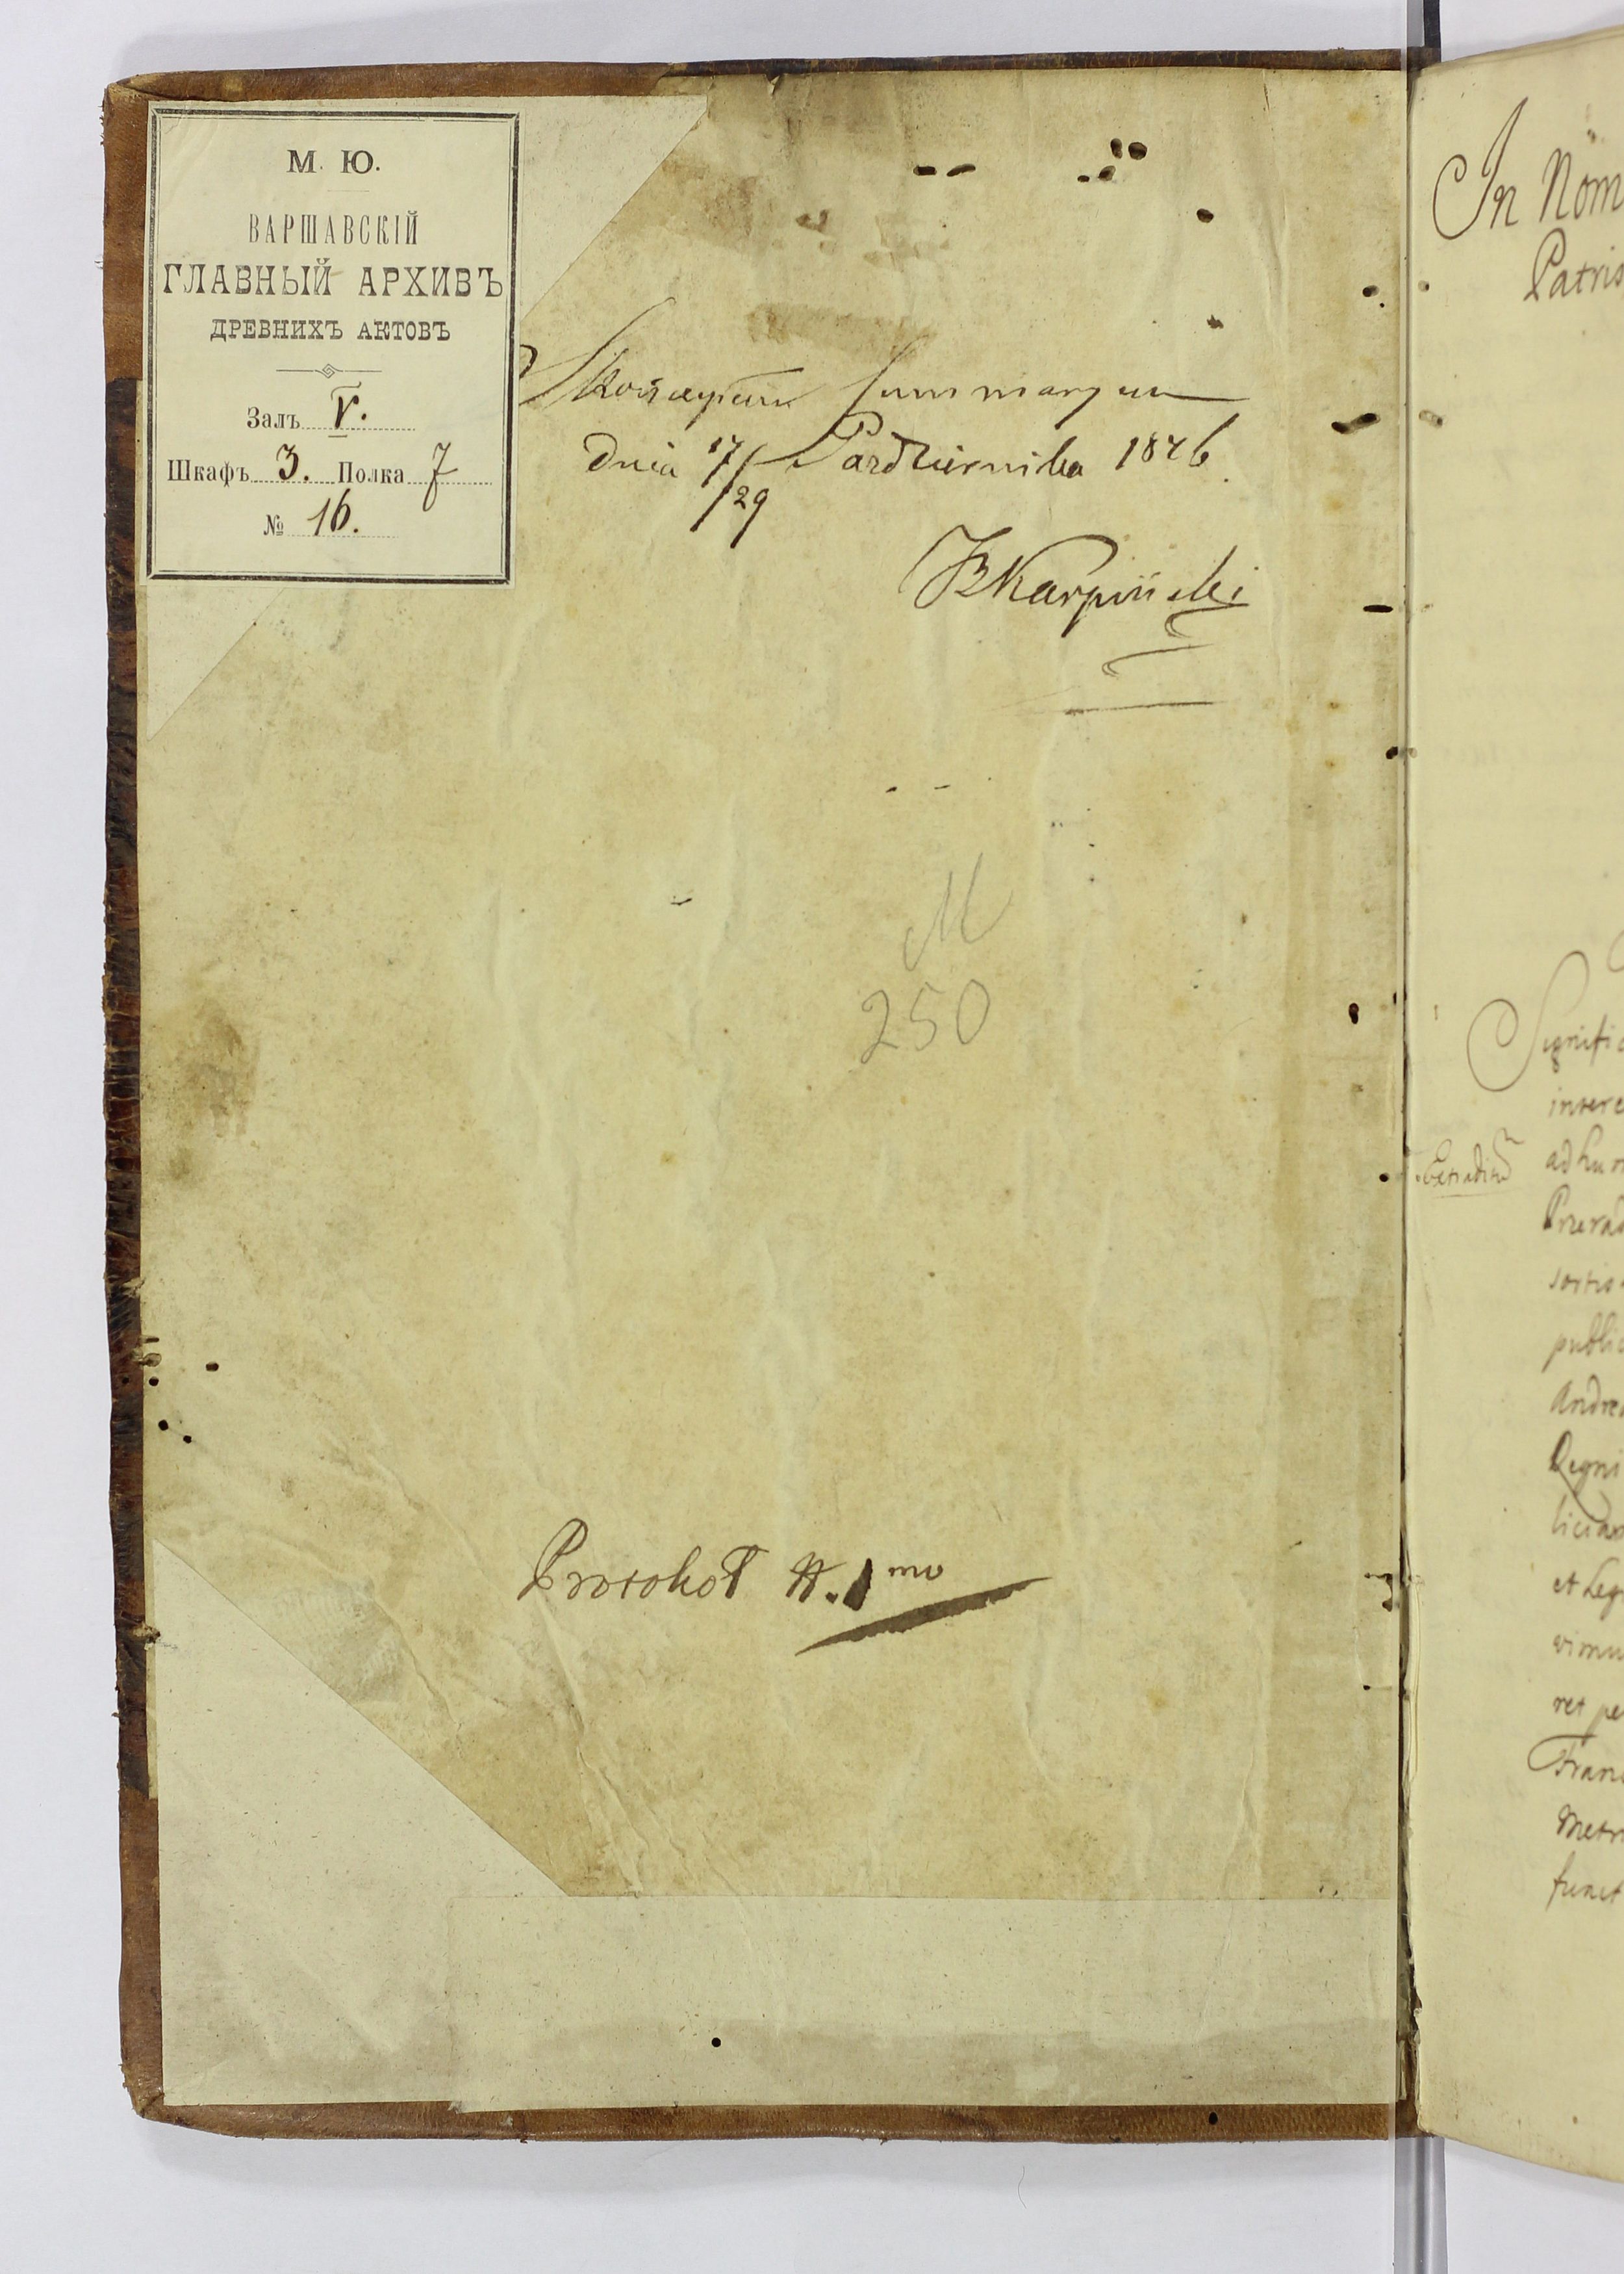 М. Ю.
ВАРШАВСКІЙ
ГЛАВНЫЙ АРХИВЪ
ДРЕВНИХЪ АКТОВЪ
Залъ V.
Шкафъ 3. Полка 7
№ 16.
Skończyłem Summaryum
dnia 17/29 Października 1846.
JBKarpiński
M
250
Protokoł N. 1mo
In Nom
Patris
Signific
intere
ad hun
sortis
public
Andrea
Regni
et Leg
vimu
ret pe
Franc
Metri
funct